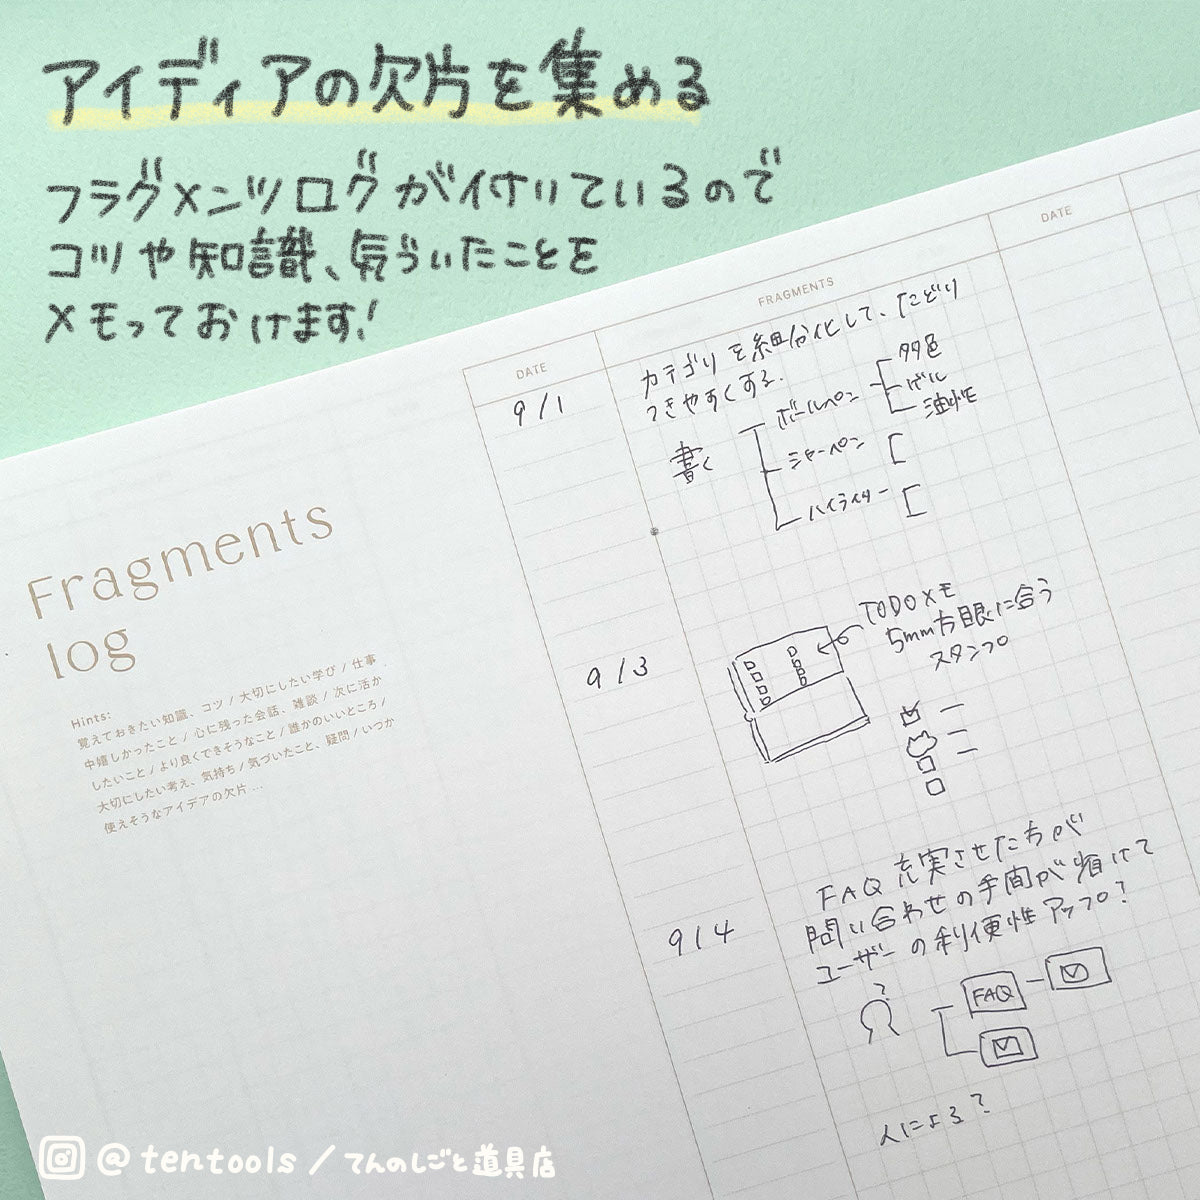 アイディアの欠片を集める
フラグメンツログが付いているので
コツや知識、気づいたことを
メモっておけます!
Fragments
log
Hints:
覚えておきたい知識、コツ / 大切にしたい学び / 仕事
中嬉しかったこと / 心に残った会話、雑談 / 次に活か
したいこと / より良くできそうなこと / 誰かのいいところ /
大切にしたい考え、気持ち / 気づいたこと、疑問 / いつか
使えそうなアイデアの欠片 …
DATE
FRAGMENTS
DATE
9/1
カテゴリを細分化して、たどり
つきやすくする.
書く
ボールペン
多色
ゲル
油性
シャーペン
ハイライター
9/3
TODOメモ
5mm方眼に合う
スタンプ
9/4
FAQ 充実させた方が
問い合わせの手間が省けて
ユーザーの利便性アップ?
?
FAQ
人による?
@tentools / てんのしごと道具店